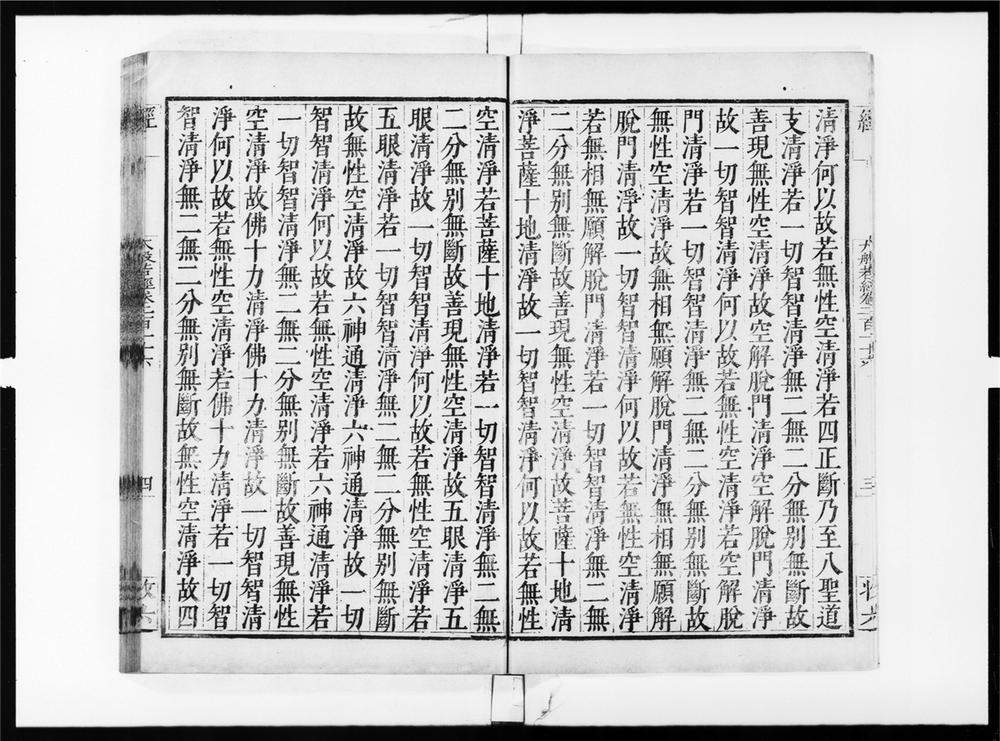 經
大般若經卷二百一十六
三
清淨何以故若無性空清淨若四正斷乃至八聖道
支清淨若一切智智清淨無二無二分無別無斷故
善現無性空清淨故空解脫門清淨空解脫門清淨
故一切智智清淨何以故若無性空清淨若空解脫
門清淨若一切智智清淨無二無二分無別無斷故
無性空清淨故無相無願解脫門清淨無相無願解
脫門清淨故一切智智清淨何以故若無性空清淨
若無相無願解脫門清淨若一切智智清淨無二無
二分無別無斷故善現無性空清淨故菩薩十地清
淨菩薩十地清淨故一切智智清淨何以故若無性
空清淨若菩薩十地清淨若一切智智清淨無二無
二分無別無斷故善現無性空清淨故五眼清淨五
眼清淨故一切智智清淨何以故若無性空清淨若
五眼清淨若一切智智清淨無二無二分無別無斷
故無性空清淨故六神通清淨六神通清淨故一切
智智清淨何以故若無性空清淨若六神通清淨若
一切智智清淨無二無二分無別無斷故善現無性
空清淨故佛十力清淨佛十力清淨故一切智智清
淨何以故若無性空清淨若佛十力清淨若一切智
智清淨無二無二分無別無斷故無性空清淨故四
經
大般若經卷二百一十六
四